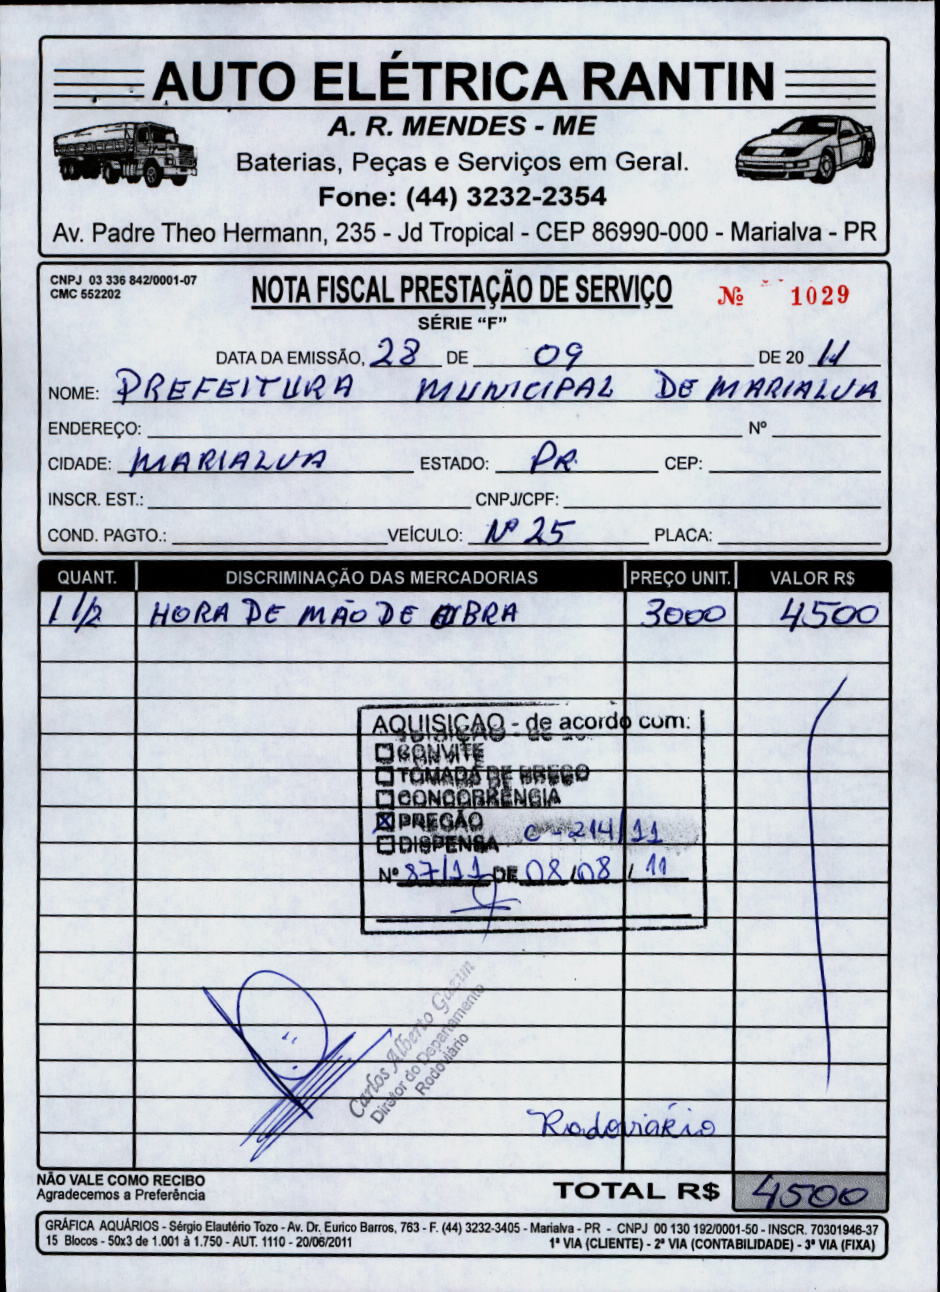 AUTO ELÉTRICA RANTIN
A. R. MENDES - ME
Baterias, Peças e Serviços em Geral.
Fone: (44) 3232-2354
Av. Padre Theo Hermann, 235 - Jd Tropical - CEP 86990-000 - Marialva - PR
CNPJ 03 336 842/0001-07
CMC 552202
NOTA FISCAL PRESTAÇÃO DE SERVIÇO
Nº 1029
SÉRIE “F”
DATA DA EMISSÃO, 28 DE 09 DE 20 11
NOME: PREFEITURA MUNICIPAL DE MARIALVA
ENDEREÇO: Nº
CIDADE: MARIALVA ESTADO: PR. CEP:
INSCR. EST.: CNPJ/CPF:
COND. PAGTO.: VEÍCULO: Nº 25 PLACA:
QUANT. DISCRIMINAÇÃO DAS MERCADORIAS PREÇO UNIT. VALOR R$
1 1/2 HORA DE MÃO DE OBRA 3000 4500
AQUISIÇAO - de acordo com:
CONVITE
TOMADA DE PREÇO
CONCORRÊNCIA
PREGÃO
C - 214/11
DISPENSA
Nº 87/11 DE 08/08/11
Carlos Alberto
Diretor do Departamento
Rodoviário
Rodoviário
NÃO VALE COMO RECIBO
Agradecemos a Preferência
TOTAL R$ 4500
GRÁFICA AQUÁRIOS - Sérgio Elautério Tozo - Av. Dr. Eurico Barros, 763 - F. (44) 3232-3405 - Marialva - PR - CNPJ 00 130 192/0001-50 - INSCR. 70301946-37
15 Blocos - 50x3 de 1.001 à 1.750 - AUT. 1110 - 20/06/2011 1ª VIA (CLIENTE) - 2ª VIA (CONTABILIDADE) - 3ª VIA (FIXA)